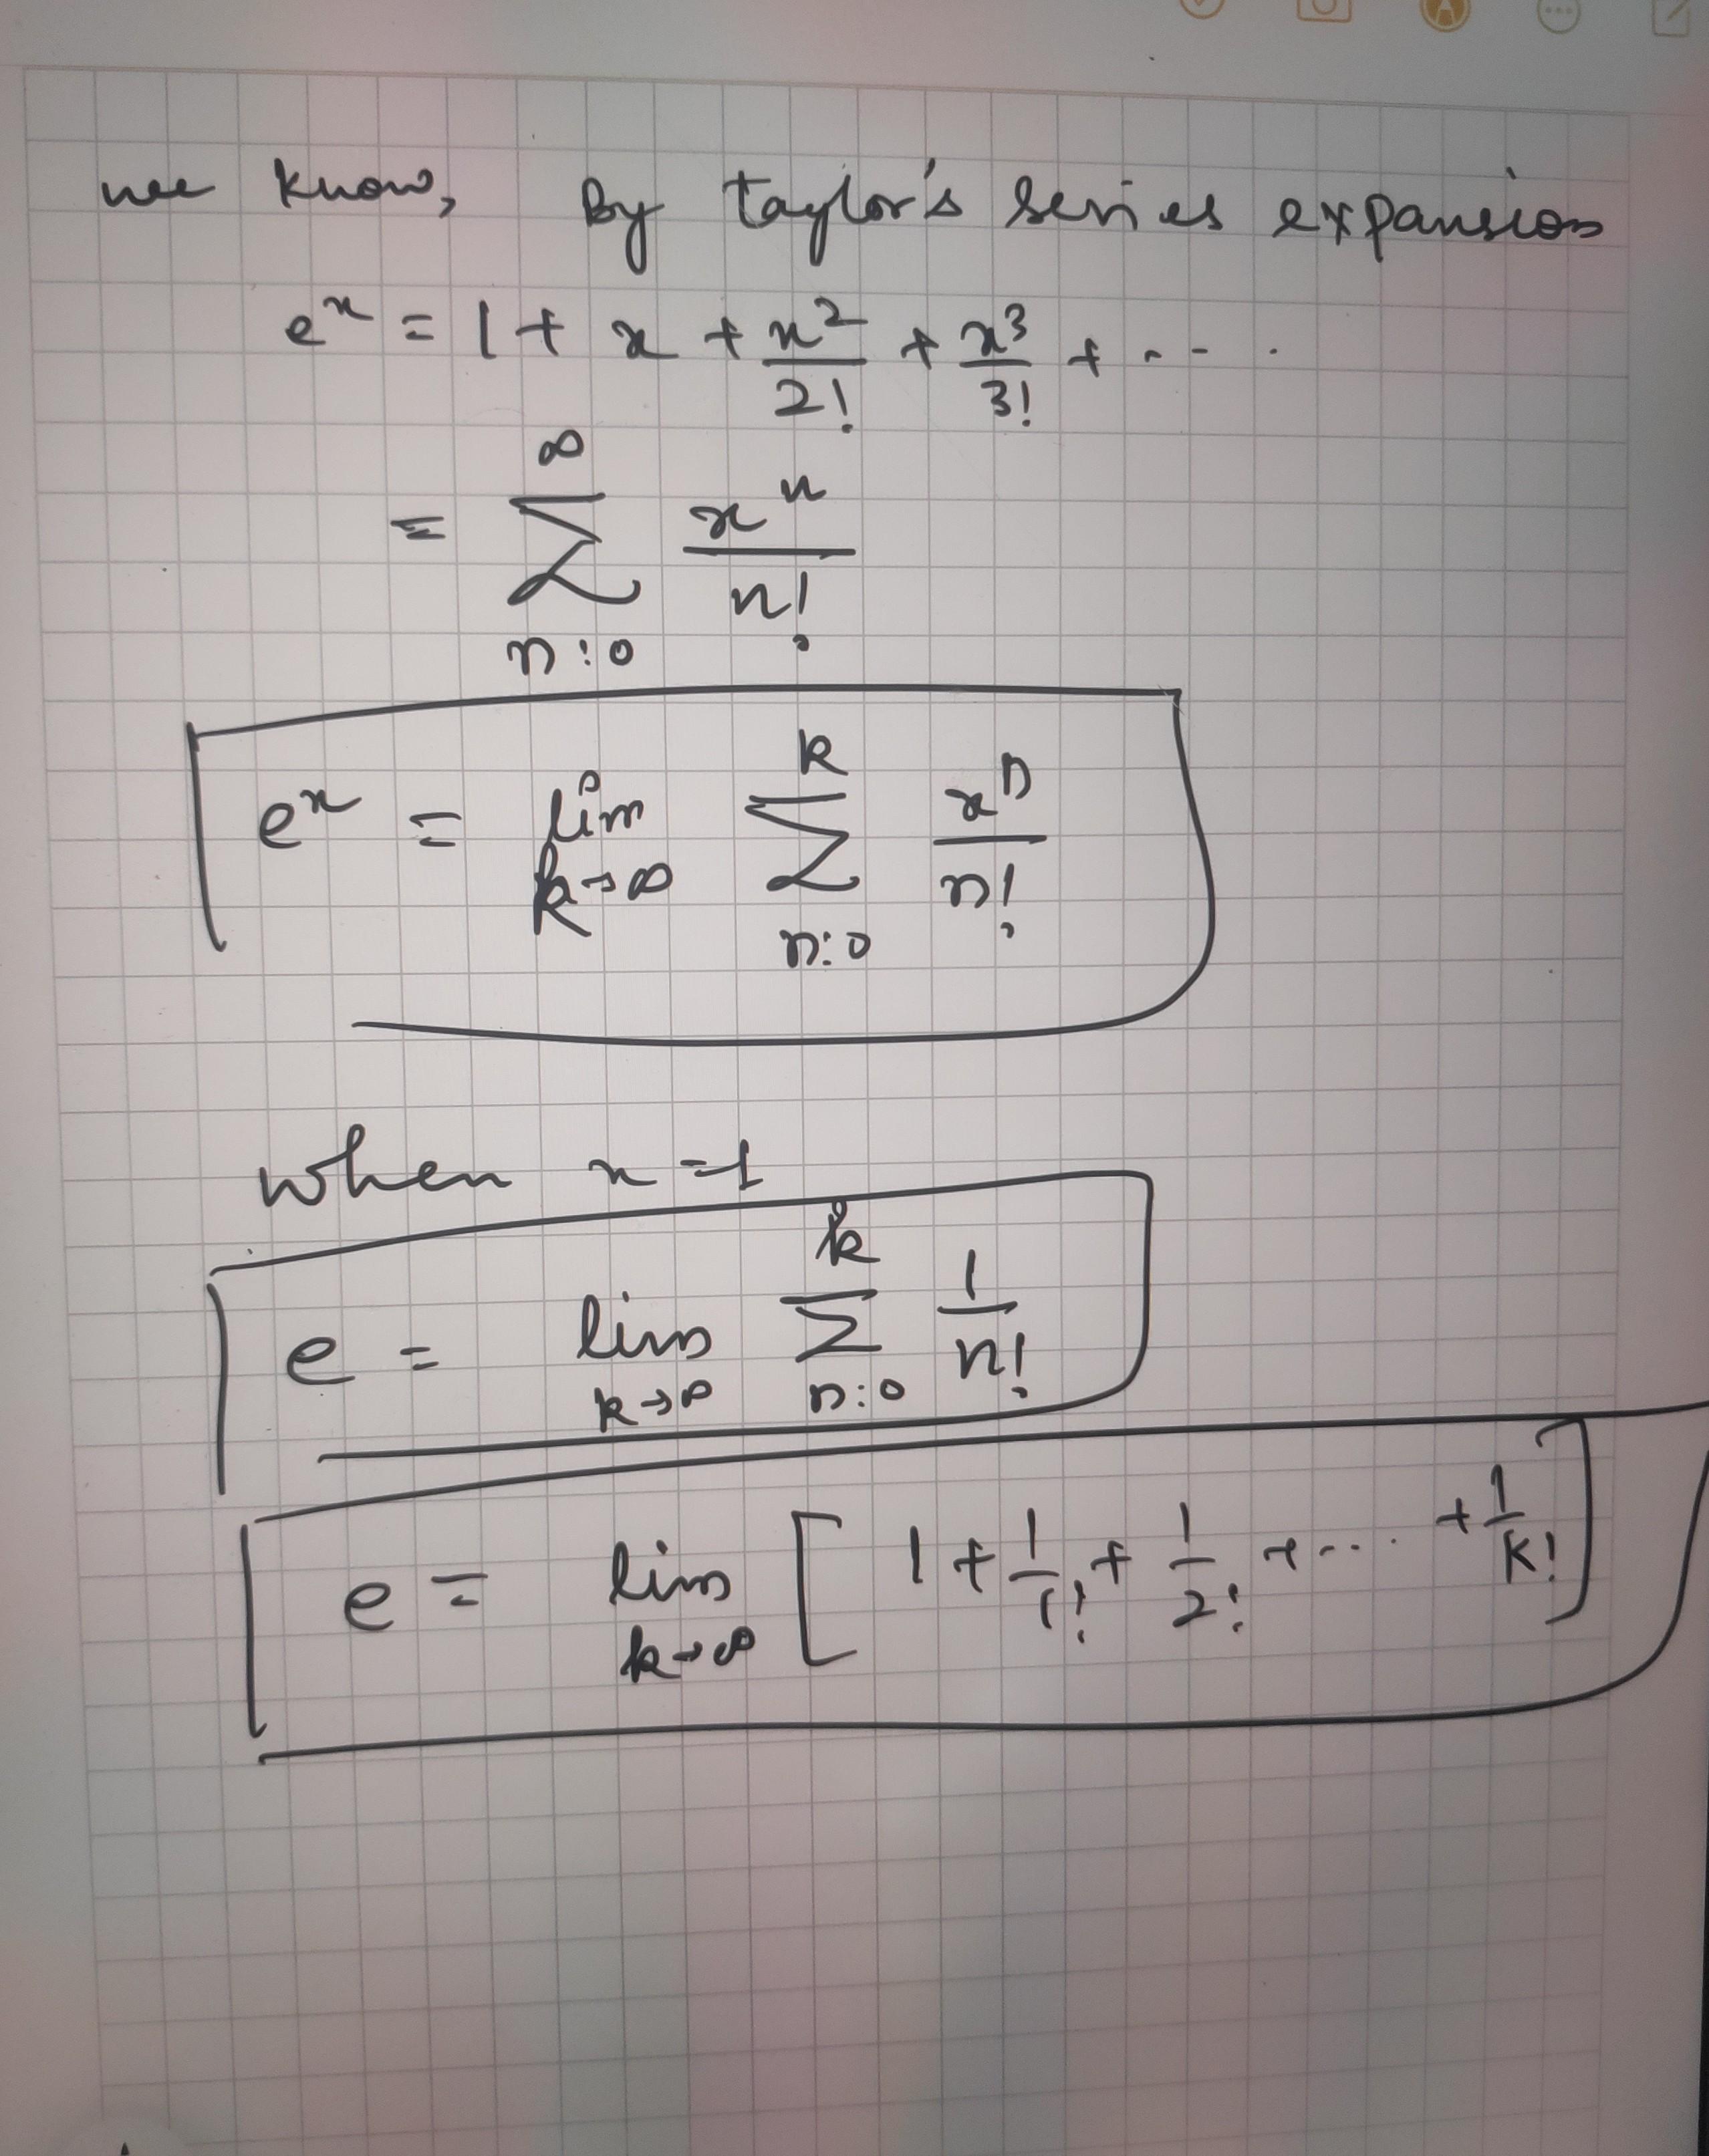 we know, By taylor's series expansion
e^x = 1 + x + x^2/2! + x^3/3! + ....
= ∑_{n:0}^{∞} x^n/n!
e^x = lim_{k→∞} ∑_{n:0}^{k} x^n/n!
when x = 1
e = lim_{k→∞} ∑_{n:0}^{k} 1/n!
e = lim_{k→∞} [ 1 + 1/1! + 1/2! + .... + 1/k! ]